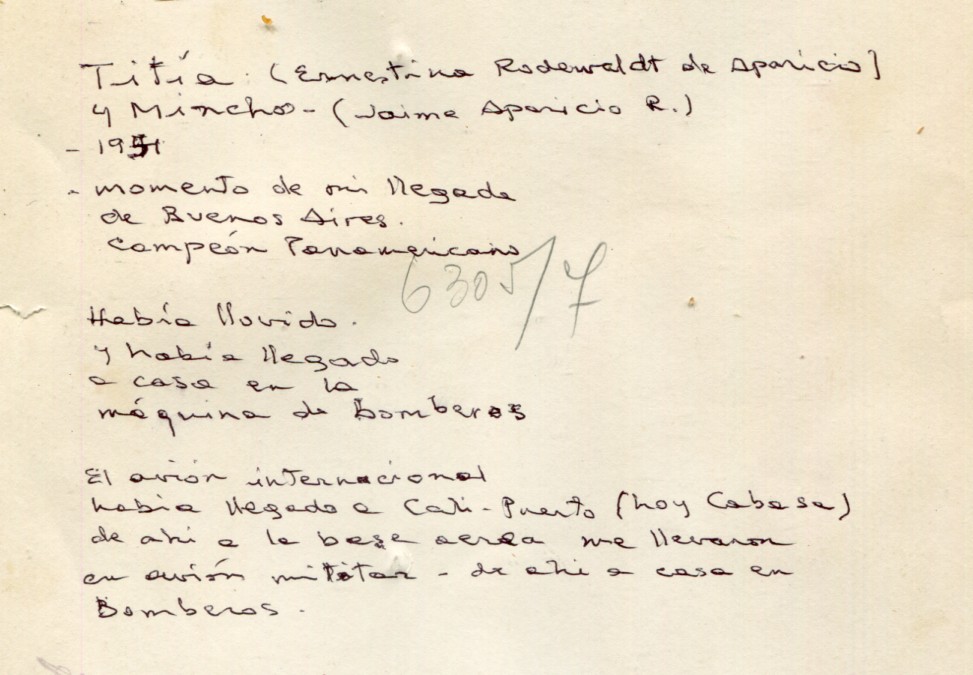 Titía (Ernestina Rodewaldt de Aparicio)
y Mincho - (Jaime Aparicio R.)
- 1951
- momento de mi llegada
de Buenos Aires.
Campeón Panamericano
6305/7
Había llovido.
y había llegado
a casa en la
máquina de Bomberos
El avión internacional
había llegado a Cali-Puerto (hoy Cabasa)
de ahi a la base aerea me llevaron
en avión militar - de ahi a casa en
Bomberos.